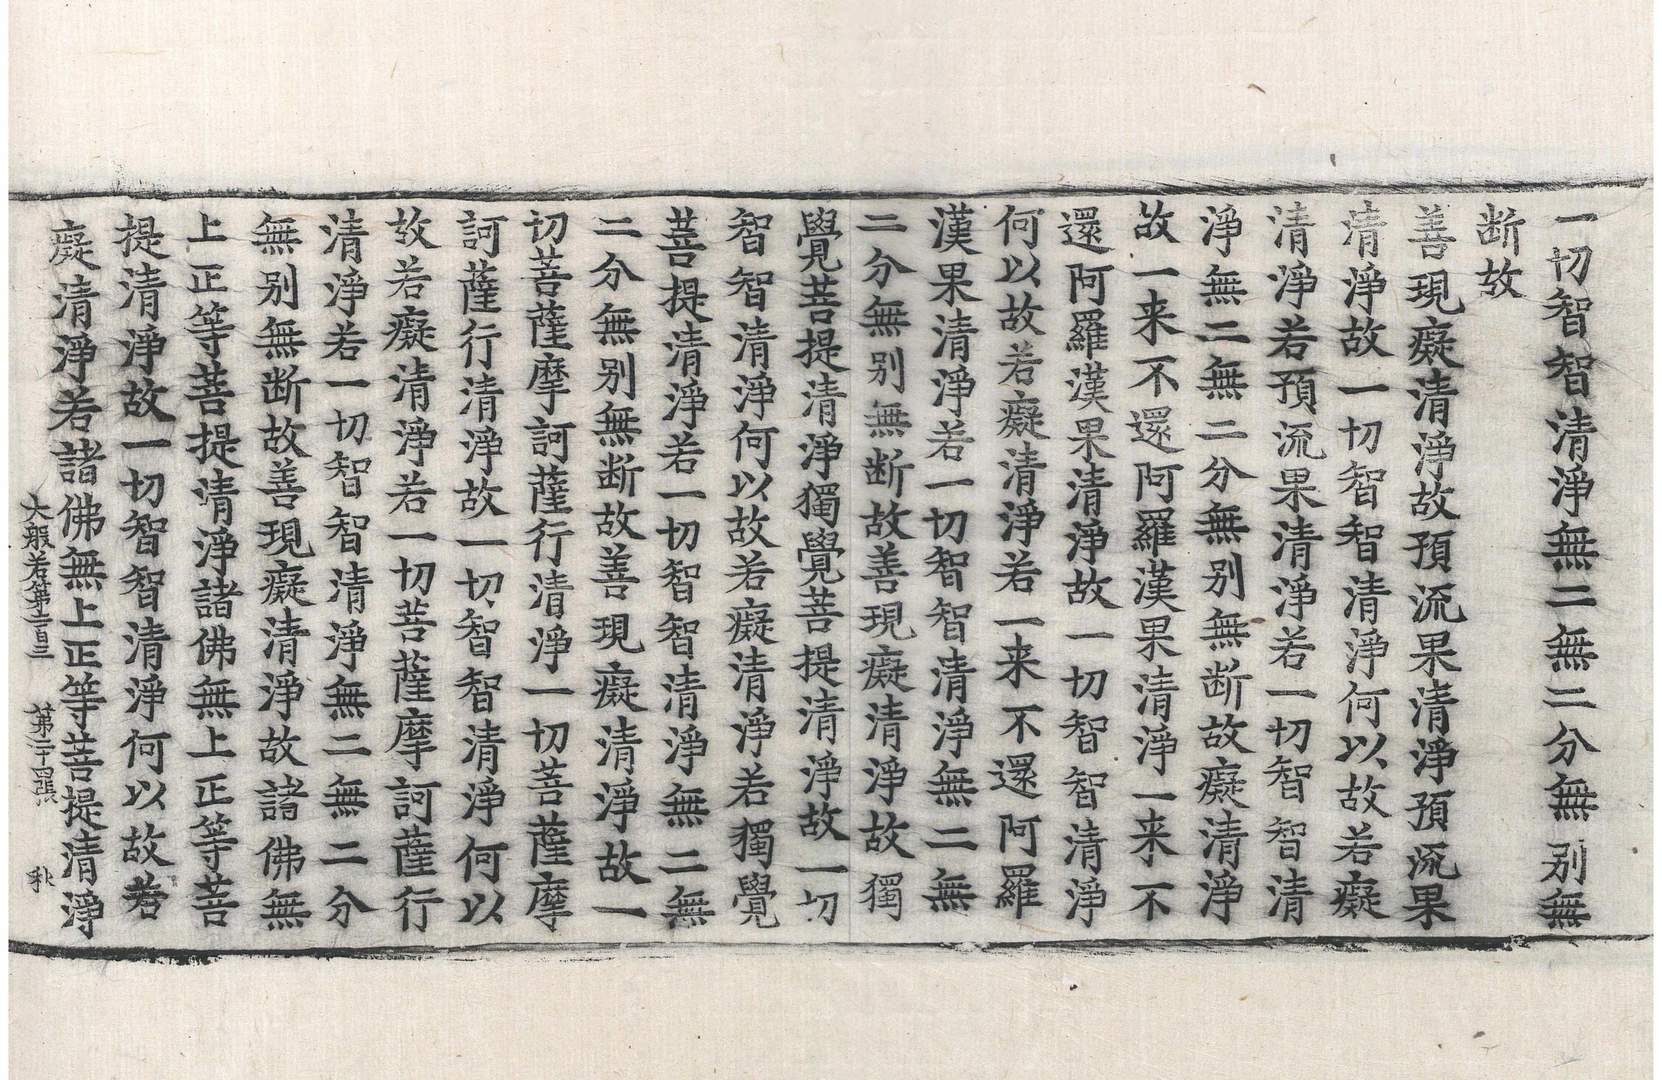 一切智智清淨無二無二分無別無
断故
善現癡清淨故預流果清淨預流果
清淨故一切智智清淨何以故若癡
清淨若預流果清淨若一切智智清
淨無二無二分無別無断故癡清淨
故一来不還阿羅漢果清淨一来不
還阿羅漢果清淨故一切智智清淨
何以故若癡清淨若一来不還阿羅
漢果清淨若一切智智清淨無二無
二分無別無断故善現癡清淨故獨
覺菩提清淨獨覺菩提清淨故一切
智智清淨何以故若癡清淨若獨覺
菩提清淨若一切智智清淨無二無
二分無別無断故善現癡清淨故一
切菩薩摩訶薩行清淨一切菩薩摩
訶薩行清淨故一切智智清淨何以
故若癡清淨若一切菩薩摩訶薩行
清淨若一切智智清淨無二無二分
無別無断故善現癡清淨故諸佛無
上正等菩提清淨諸佛無上正等菩
提清淨故一切智智清淨何以故若
癡清淨若諸佛無上正等菩提清淨
大般若第二百三 第二十四張 秋